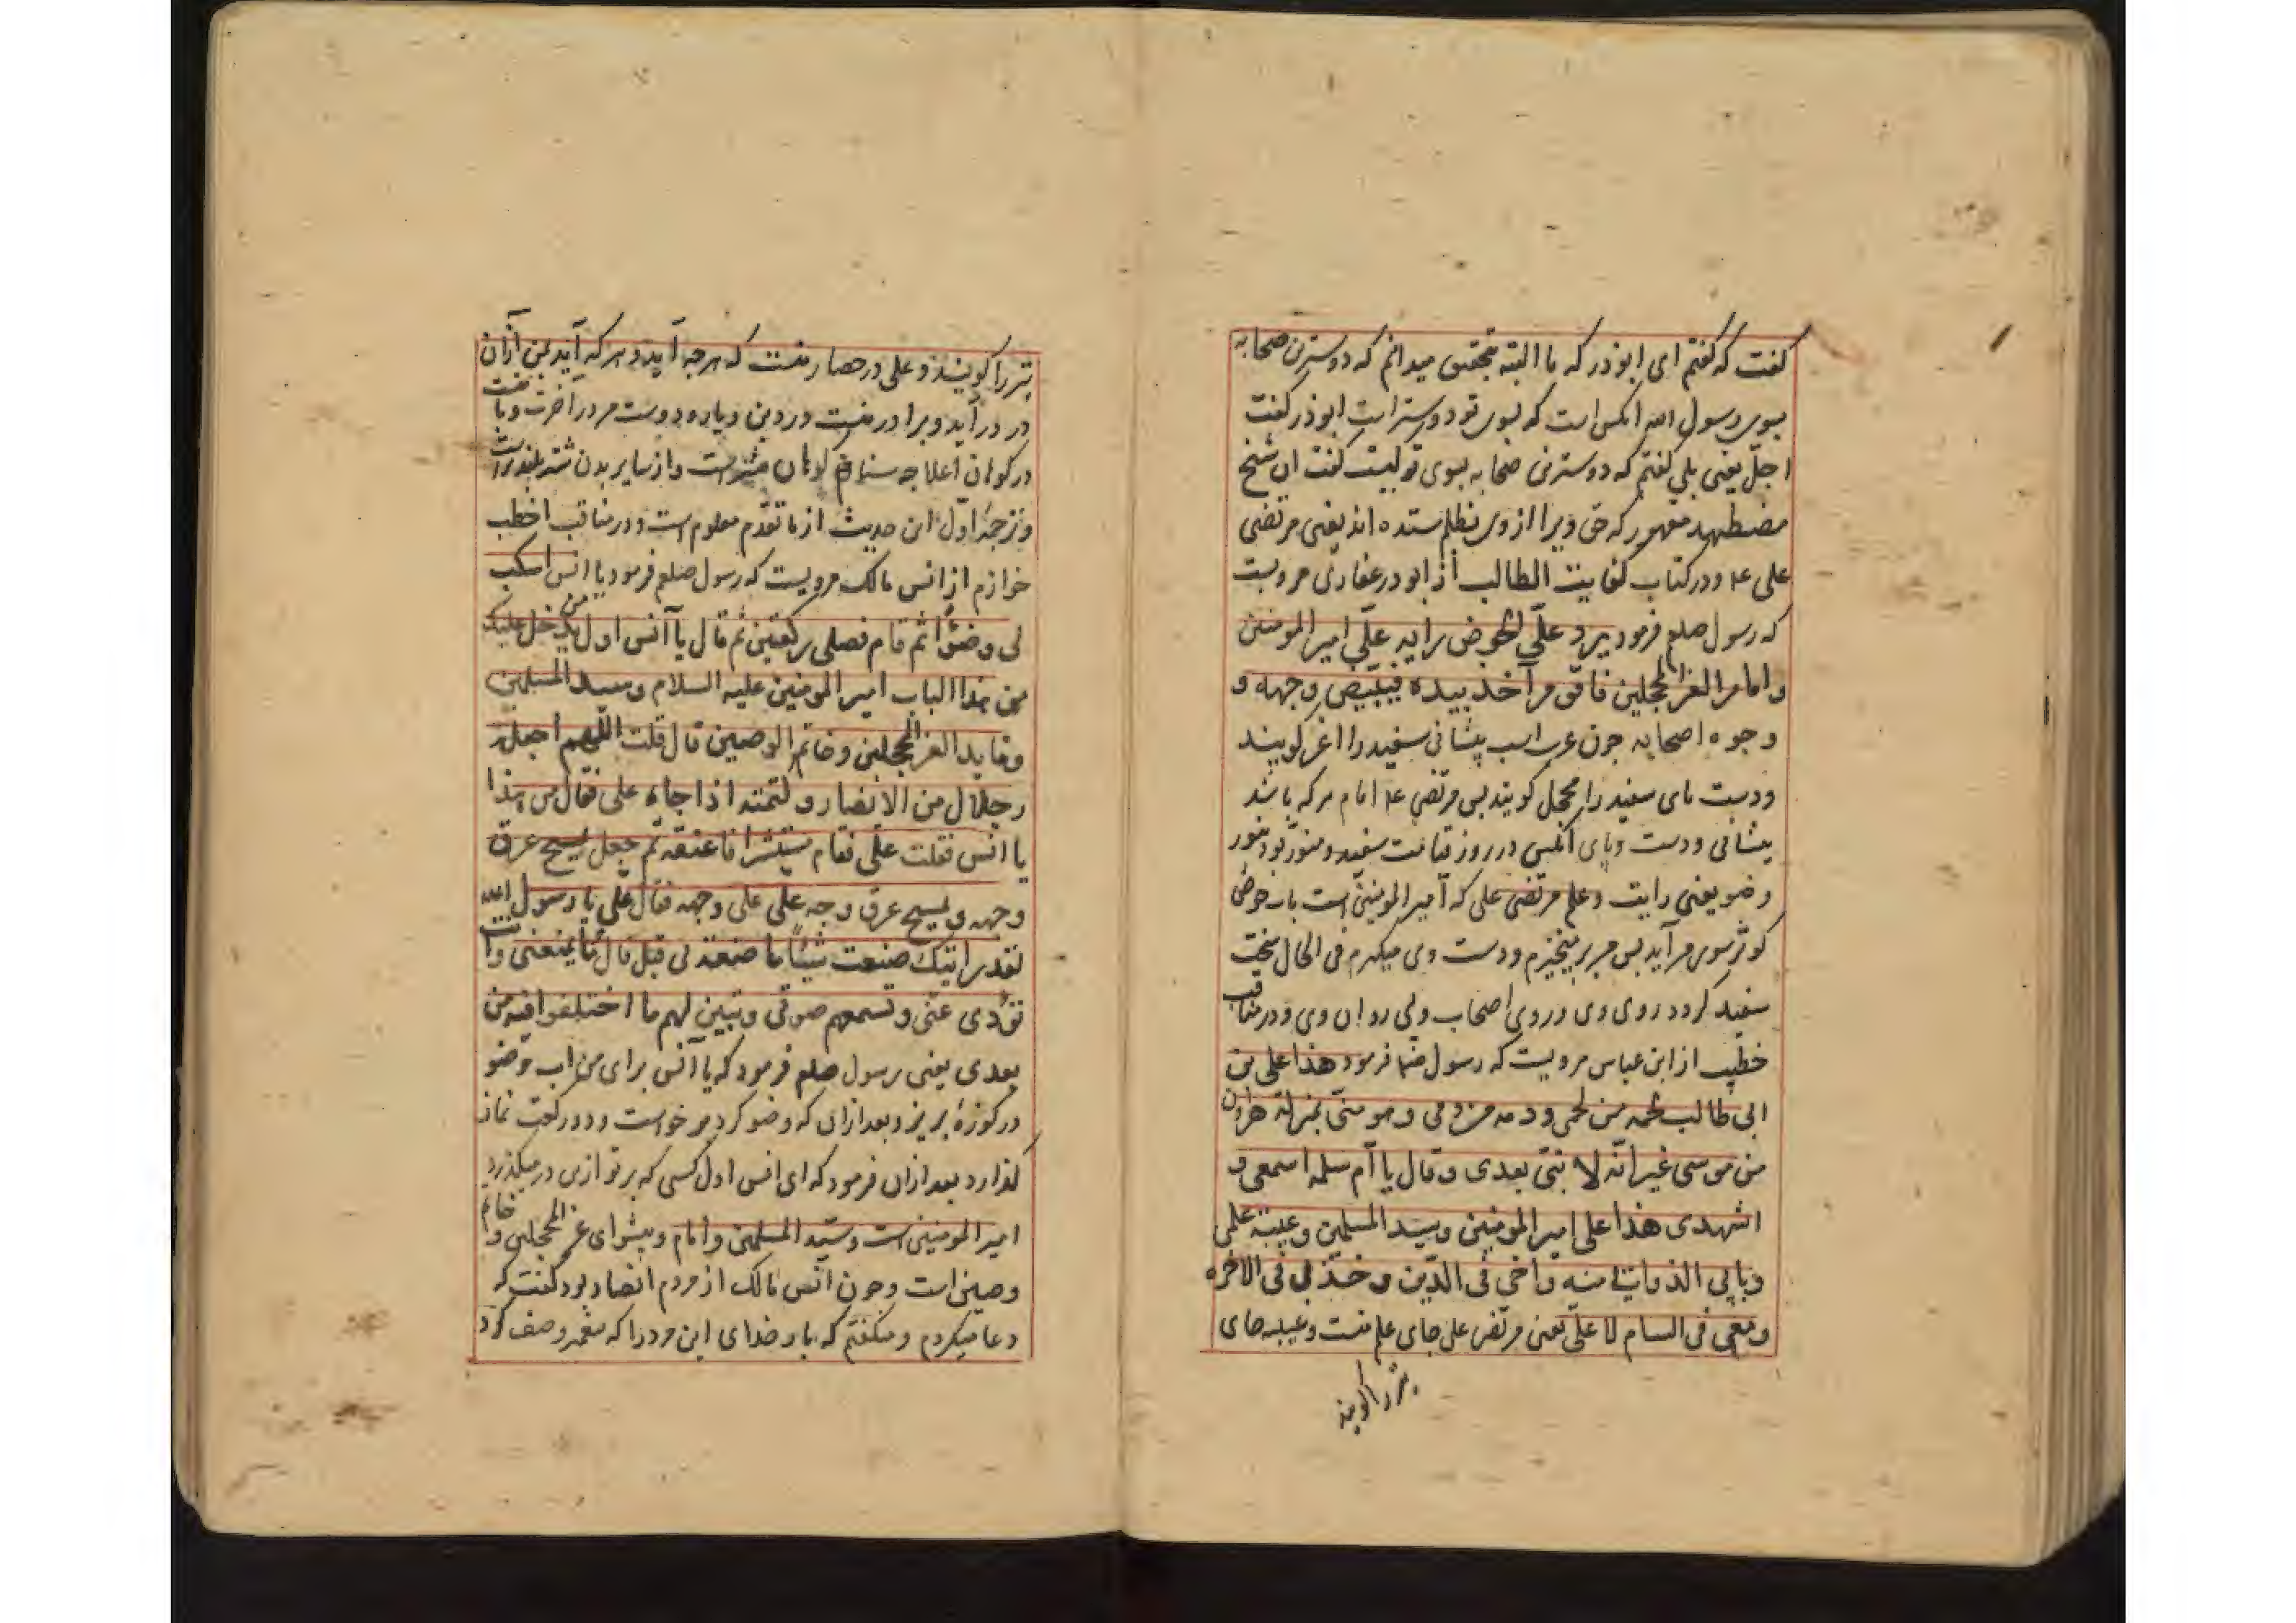 گفت که گفتم ای ابوذر که ما البته بتحقیق میدانم که دوسترین صحابه
بسوی رسول الله انکس است که بسوی تو دوستر است ابوذر گفت
اجل یعنی بلی گفتم که دوسترین صحابه بسوی تو کیست گفت ان شیخ
مضطهد مقهور که حق ویرا ازوی بظلم ستده اند یعنی مرتضی
علی ع۴ ودر کتاب کفایت الطالب از ابوذر غفاری مرویست
که رسول صلعم فرمود یرد علّی الحوض رایه علّی امیر المومنین
وامام الغر المحجلین فاقوم آخذ بیده فیبیض وجهه و
وجوه اصحابه چون عرب اسب پیشانی سفید را اغر گویند
ودست پای سفید را محجل گویند پس مرتضی ع۴ امام هر که باشد
پیشانی ودست وپای انکس در روز قیامت سفید ومنور بود بنور
وضو یعنی رایت وعلم مرتضی علی که امیر المومنین است بار حوض
کوثر سوی من آید پس من بر میخیزم ودست وی میگیرم فی الحال سخت
سفید گردد روی وی وروی اصحاب وپی روان وی ودر مناقب
خطیب از ابن عباس مرویست که رسول فرمود هذا علی بن
ابی طالب لحمه من لحمی ودمه من دمی وهو منّی بمنزلة هرون
من موسی غیر انّه لا نبّی بعدی وقال یا ام سلمه اسمعی و
اشهدی هذا علی امیر المومنین وسید المسلمین وعیبة علمی
وبابی الذی اوتی منه واخی فی الدّین وخدنی فی الاخره
ومعی فی السنام الاعلی یعنی مرتضی علی جای علم منست وعیبه جای
را گویند
را گویند وعلی در حصار منست که هرچه آید وهر که آید بمن ازان
در در آید وبرادر منست در دین ویار ودوست من در آخرت وبا منست
در کوهان اعلا چه سنام کوهان شتر است واز سایر بدن شتر بلند تر است
وترجمهٔ اوّل این حدیث از ما تقدّم معلوم است ودر مناقب اخطب
خوازم از انس مالک مرویست که رسول صلعم فرمود یا انس اسکب
لی وضوًا ثم قام فصلی رکعتین ثم قال یا انس اول من یدخل علیک
من هذا الباب امیر المومنین علیه السلام وسید المسلمین
وقاید الغر المحجلین وخاتم الوصیین قال قلت اللّهم اجعله
رجلا من الانصار وکتمته اذا جاء علی فقال من هذا
یا انس فقلت علّی فقام مستبشرا فاعتنقه ثم جعل یمسح عرق
وجهه ویمسح عرق وجه علی علی وجهه فقال علی یا رسول الله
لقد رایتک صنعت شیئًا ما صنعته لی قبل قال ما یمنعنی وانت
تؤدی عنّی وتسمعهم صوتی وتبین لهم ما اختلفوا فیه من
بعدی یعنی رسول صلعم فرمود که یا انس برای من اب وضو
در کوزهٔ بریز وبعد ازان که وضو کرد برخواست ودو رکعت نماز
گذارد بعد ازان فرمود که ای انس اول کسی که بر تو ازین در میگذرد
امیر المومنین است وسیّد المسلمین وامام وپیشوای غر المحجلین وخاتم
وصیین است وچون انس مالک از مردم انصار بود گفت که
دعا میکردم ومیگفتم که بار خدای این مرد را که پیغمبر وصف کرد